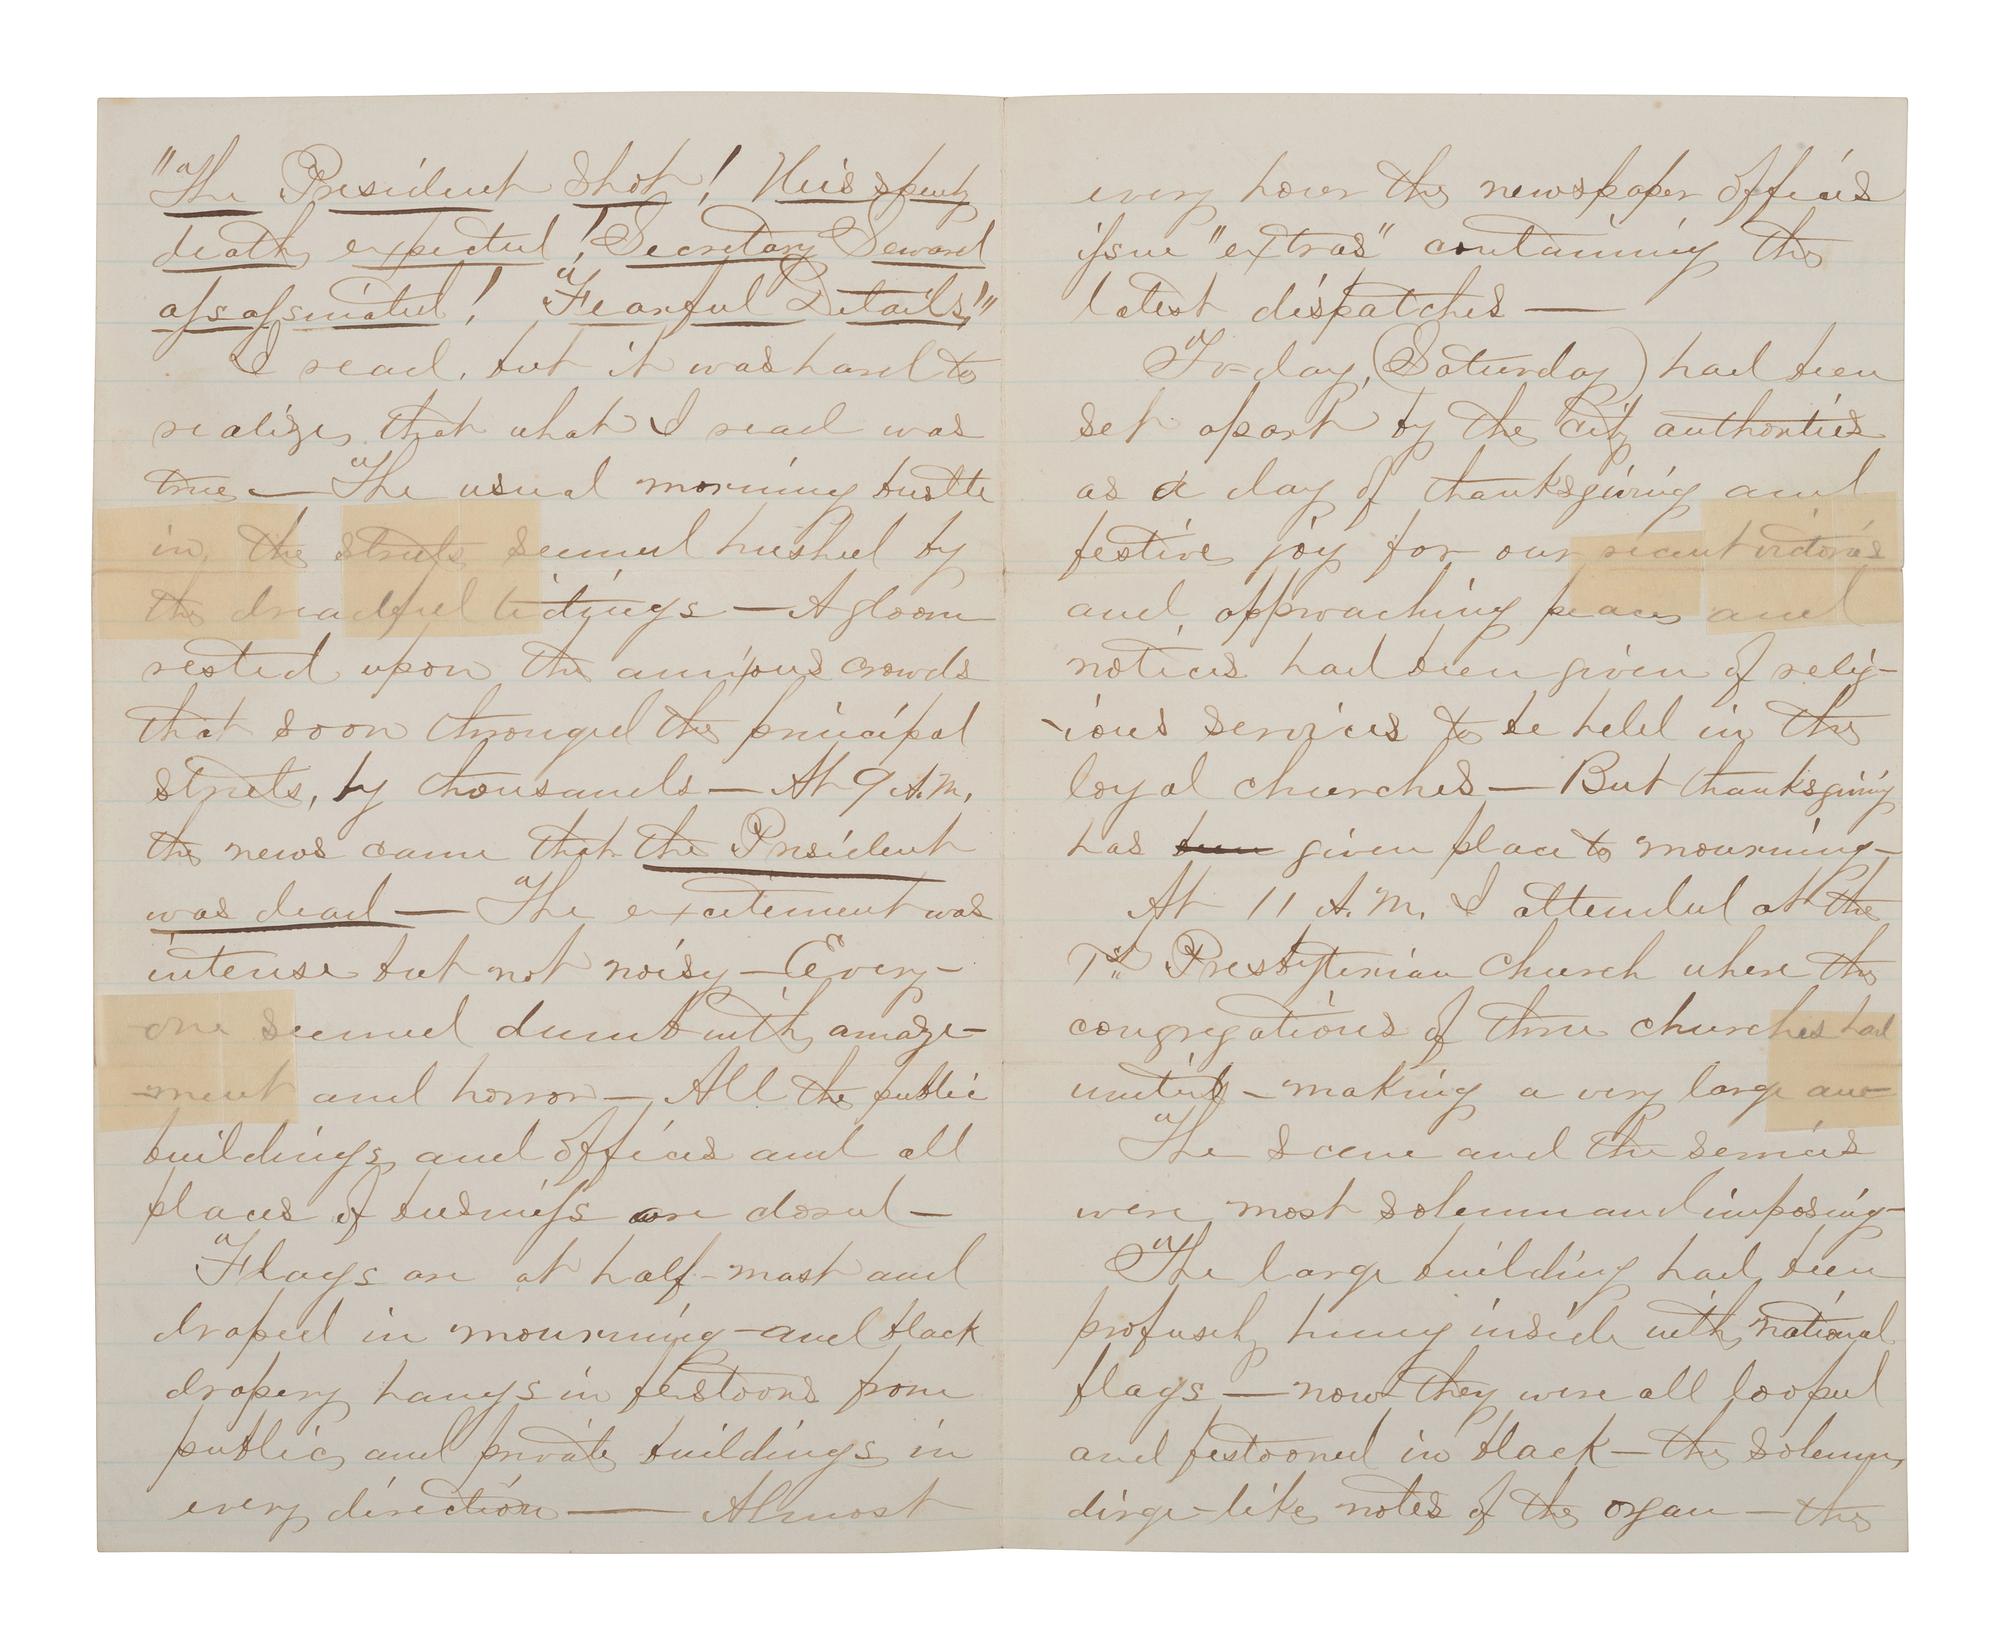 "The President Shot! His speedy
death expected! Secretary Seward
assassinated! Fearful Details!"
I read, but it was hard to
realize that what I read was
true — The usual morning bustle
in the streets seemed hushed by
the dreadful tidings — A gloom
rested upon the anxious crowds
that soon thronged the principal
streets, by thousands — At 9 A.M.
the news came that the President
was dead — The excitement was
intense but not noisy — Every-
one seemed dumb with amaze-
-ment and horror — All the public
buildings and offices and all
places of business are closed —
Flags are at half-mast and
draped in mourning — and black
drapery hangs in festoons from
public and private buildings in
every direction — Almost
every hour the newspaper offices
issue "extras" containing the
latest dispatches —
To-day, (Saturday) had been
set apart by the City authorities
as a day of thanksgiving and
festive joy for our recent victories
and, approaching peace and
notices had been given of relig-
-ious services to be held in the
loyal churches — But thanksgiving
has been given place to mourning —
At 11 A.M. I attended at the
1st Presbyterian Church where the
congregations of three churches had
united — making a very large au-
The scene and the services
were most solemn and imposing —
The large building had been
profusely hung inside with national
flags — now they were all looped
and festooned in black — the solemn,
dirge-like notes of the organ — the